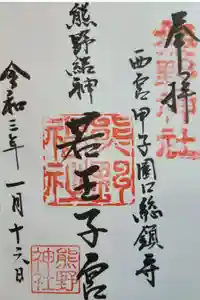 奉拝
西宮甲子園口総鎮守
熊野結神
若王子宮
熊野神社
令和三年一月十六日
熊野神社